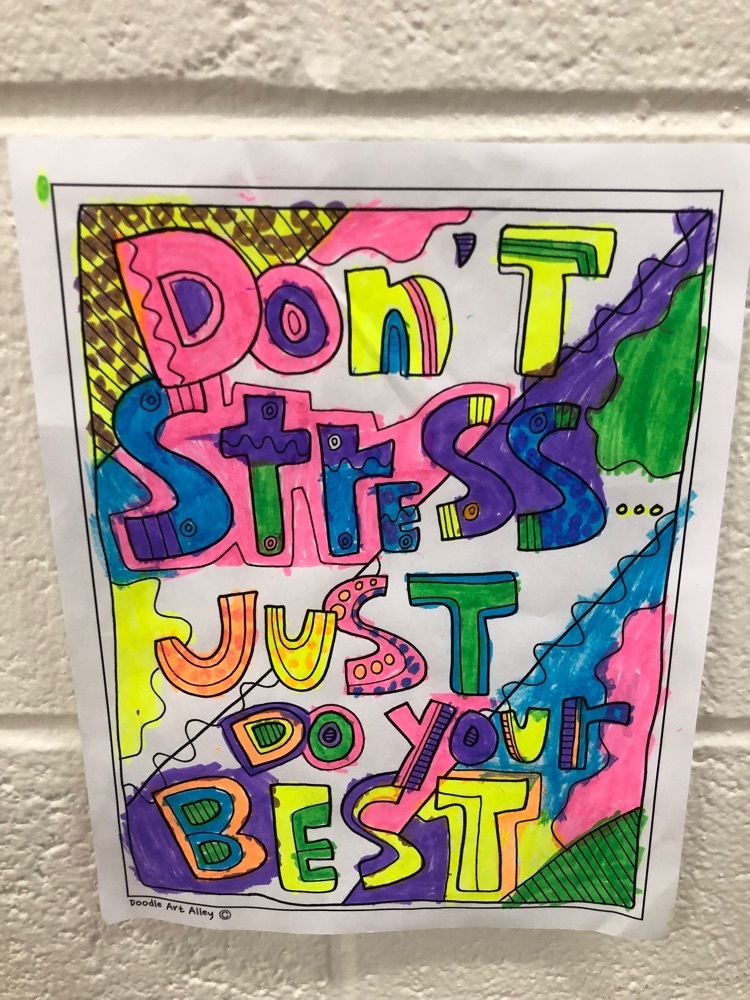 Don'T
STrESS...
JUST
DO YOUr
BEST
Doodle Art Alley ©